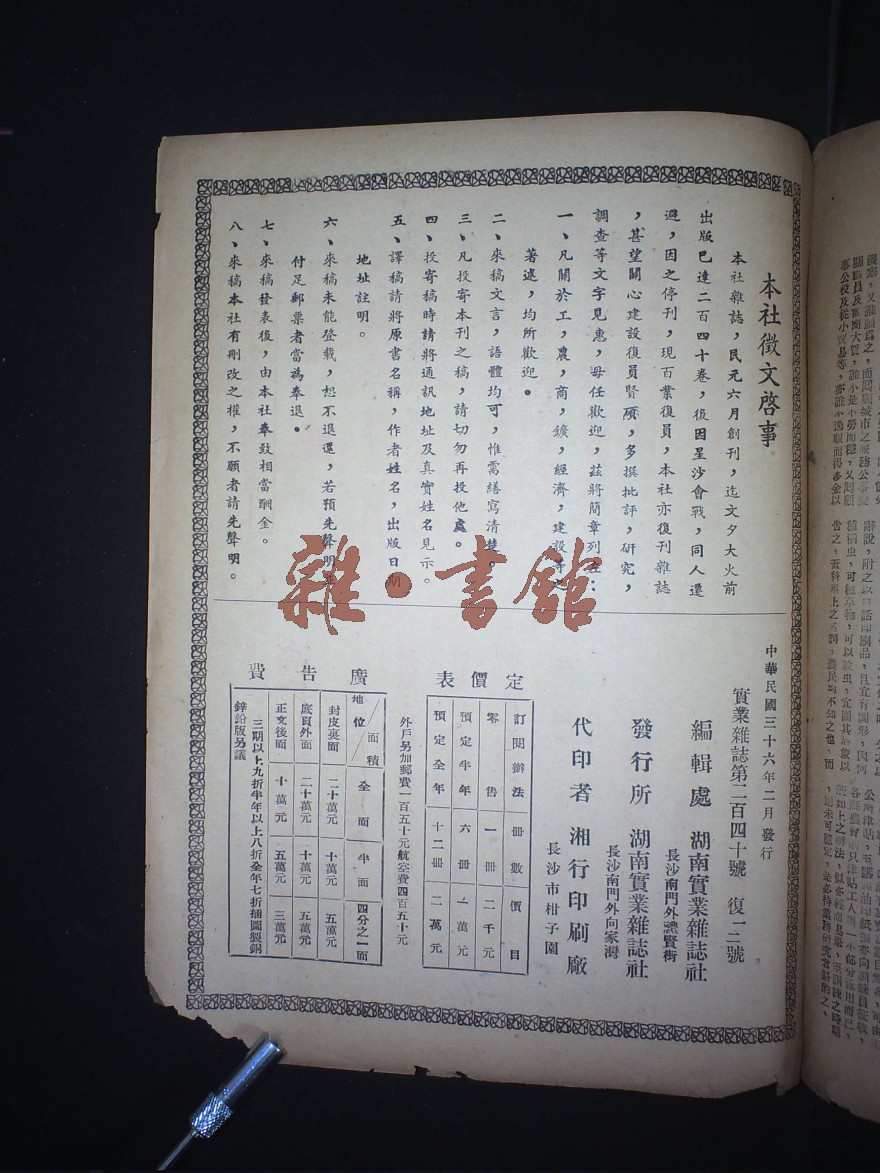 本社徵文啓事
本社雜誌，民元六月創刊，迄文夕大火前
出版已達二百四十卷，後因星沙會戰，同人遷
避，因之停刊，現百業復員，本社亦復刊雜誌
，甚望關心建設復員賢碩，多撰批評，研究，
調查等文字見惠，毋任歡迎，茲將簡章列
一、凡關於工，農，商，鑛，經濟，建設
著述，均所歡迎。
二、來稿文言，語體均可，惟需繕寫清楚。
三、凡投寄本刊之稿，請切勿再投他處。
四、投寄稿時請將通訊地址及真實姓名見示。
五、譯稿請將原書名稱，作者姓名，出版日期
地址註明。
六、來稿未能登載，恕不退還，若預先聲明
付足郵票者當為奉退。
七、來稿發表後，由本社奉致相當酬金。
八、來稿本社有刪改之權，不願者請先聲明。
中華民國三十六年二月發行
實業雜誌第二百四十號 復一二號
編輯處 湖南實業雜誌社
長沙南門外禮賢街
發行所 湖南實業雜誌社
長沙南門外向家灣
代印者 湘行印刷廠
長沙市柑子園
定價表
訂閱辦法 冊數 價目
零售 一冊 二千元
預定半年 六冊 一萬元
預定全年 十二冊 二萬元
外戶另加郵費一百五十元航空費四百五十元
廣告費
地位／面積 全面 半面 四分之一面
封皮裏面 二十萬元 十萬元 五萬元
底頁外面 二十萬元 十萬元 五萬元
正文後面 十萬元 五萬元 三萬元
三期以上九折半年以上八折全年七折插圖製銅
鋅鉛版另議
雜·書館